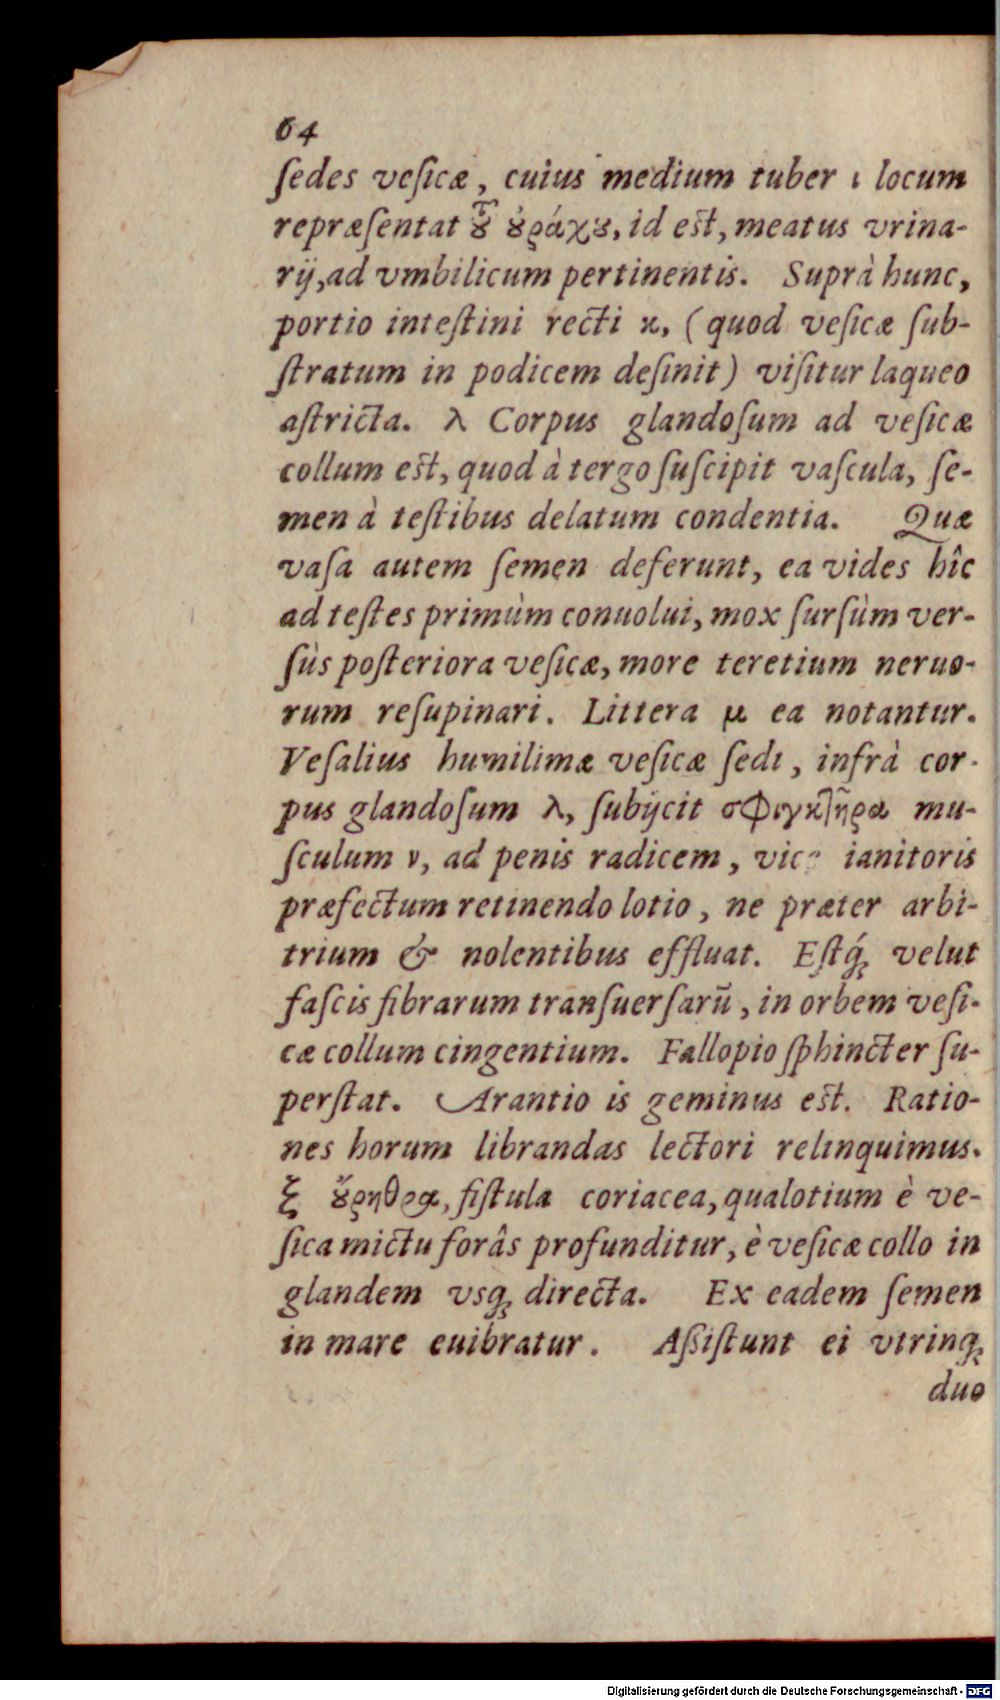 64
ſedes veſicæ, cuius medium tuber ι locum
repræſentat τȣ͂ ȣ̓ράχȣ, id eſt, meatus vrina-
rij, ad vmbilicum pertinentis. Suprà hunc,
portio inteſtini recti κ, (quod veſicæ ſub-
ſtratum in podicem deſinit) viſitur laqueo
aſtricta. λ Corpus glandoſum ad veſicæ
collum eſt, quod à tergo ſuſcipit vaſcula, ſe-
men à teſtibus delatum condentia. Quæ
vaſa autem ſemen deferunt, ea vides hîc
ad teſtes primùm conuolui, mox ſurſùm ver-
ſùs poſteriora veſicæ, more teretium neruo-
rum reſupinari. Littera μ ea notantur.
Veſalius humilimæ veſicæ ſedi, infrà cor-
pus glandoſum λ, ſubijcit σφιγκτῆρα mu-
ſculum ν, ad penis radicem, vice ianitoris
præfectum retinendo lotio, ne præter arbi-
trium & nolentibus effluat. Eſtq́; velut
faſcis fibrarum tranſuerſarũ, in orbem veſi-
cæ collum cingentium. Fallopio ſphincter ſu-
perſtat. Arantio is geminus eſt. Ratio-
nes horum librandas lectori relinquimus.
ξ ȣ̓́ρηθρα, fiſtula coriacea, qua lotium è ve-
ſica mictu forâs profunditur, è veſicæ collo in
glandem vsq; directa. Ex eadem ſemen
in mare euibratur. Aſſiſtunt ei vtrinq;
duo
Digitalisierung gefördert durch die Deutsche Forschungsgemeinschaft - DFG